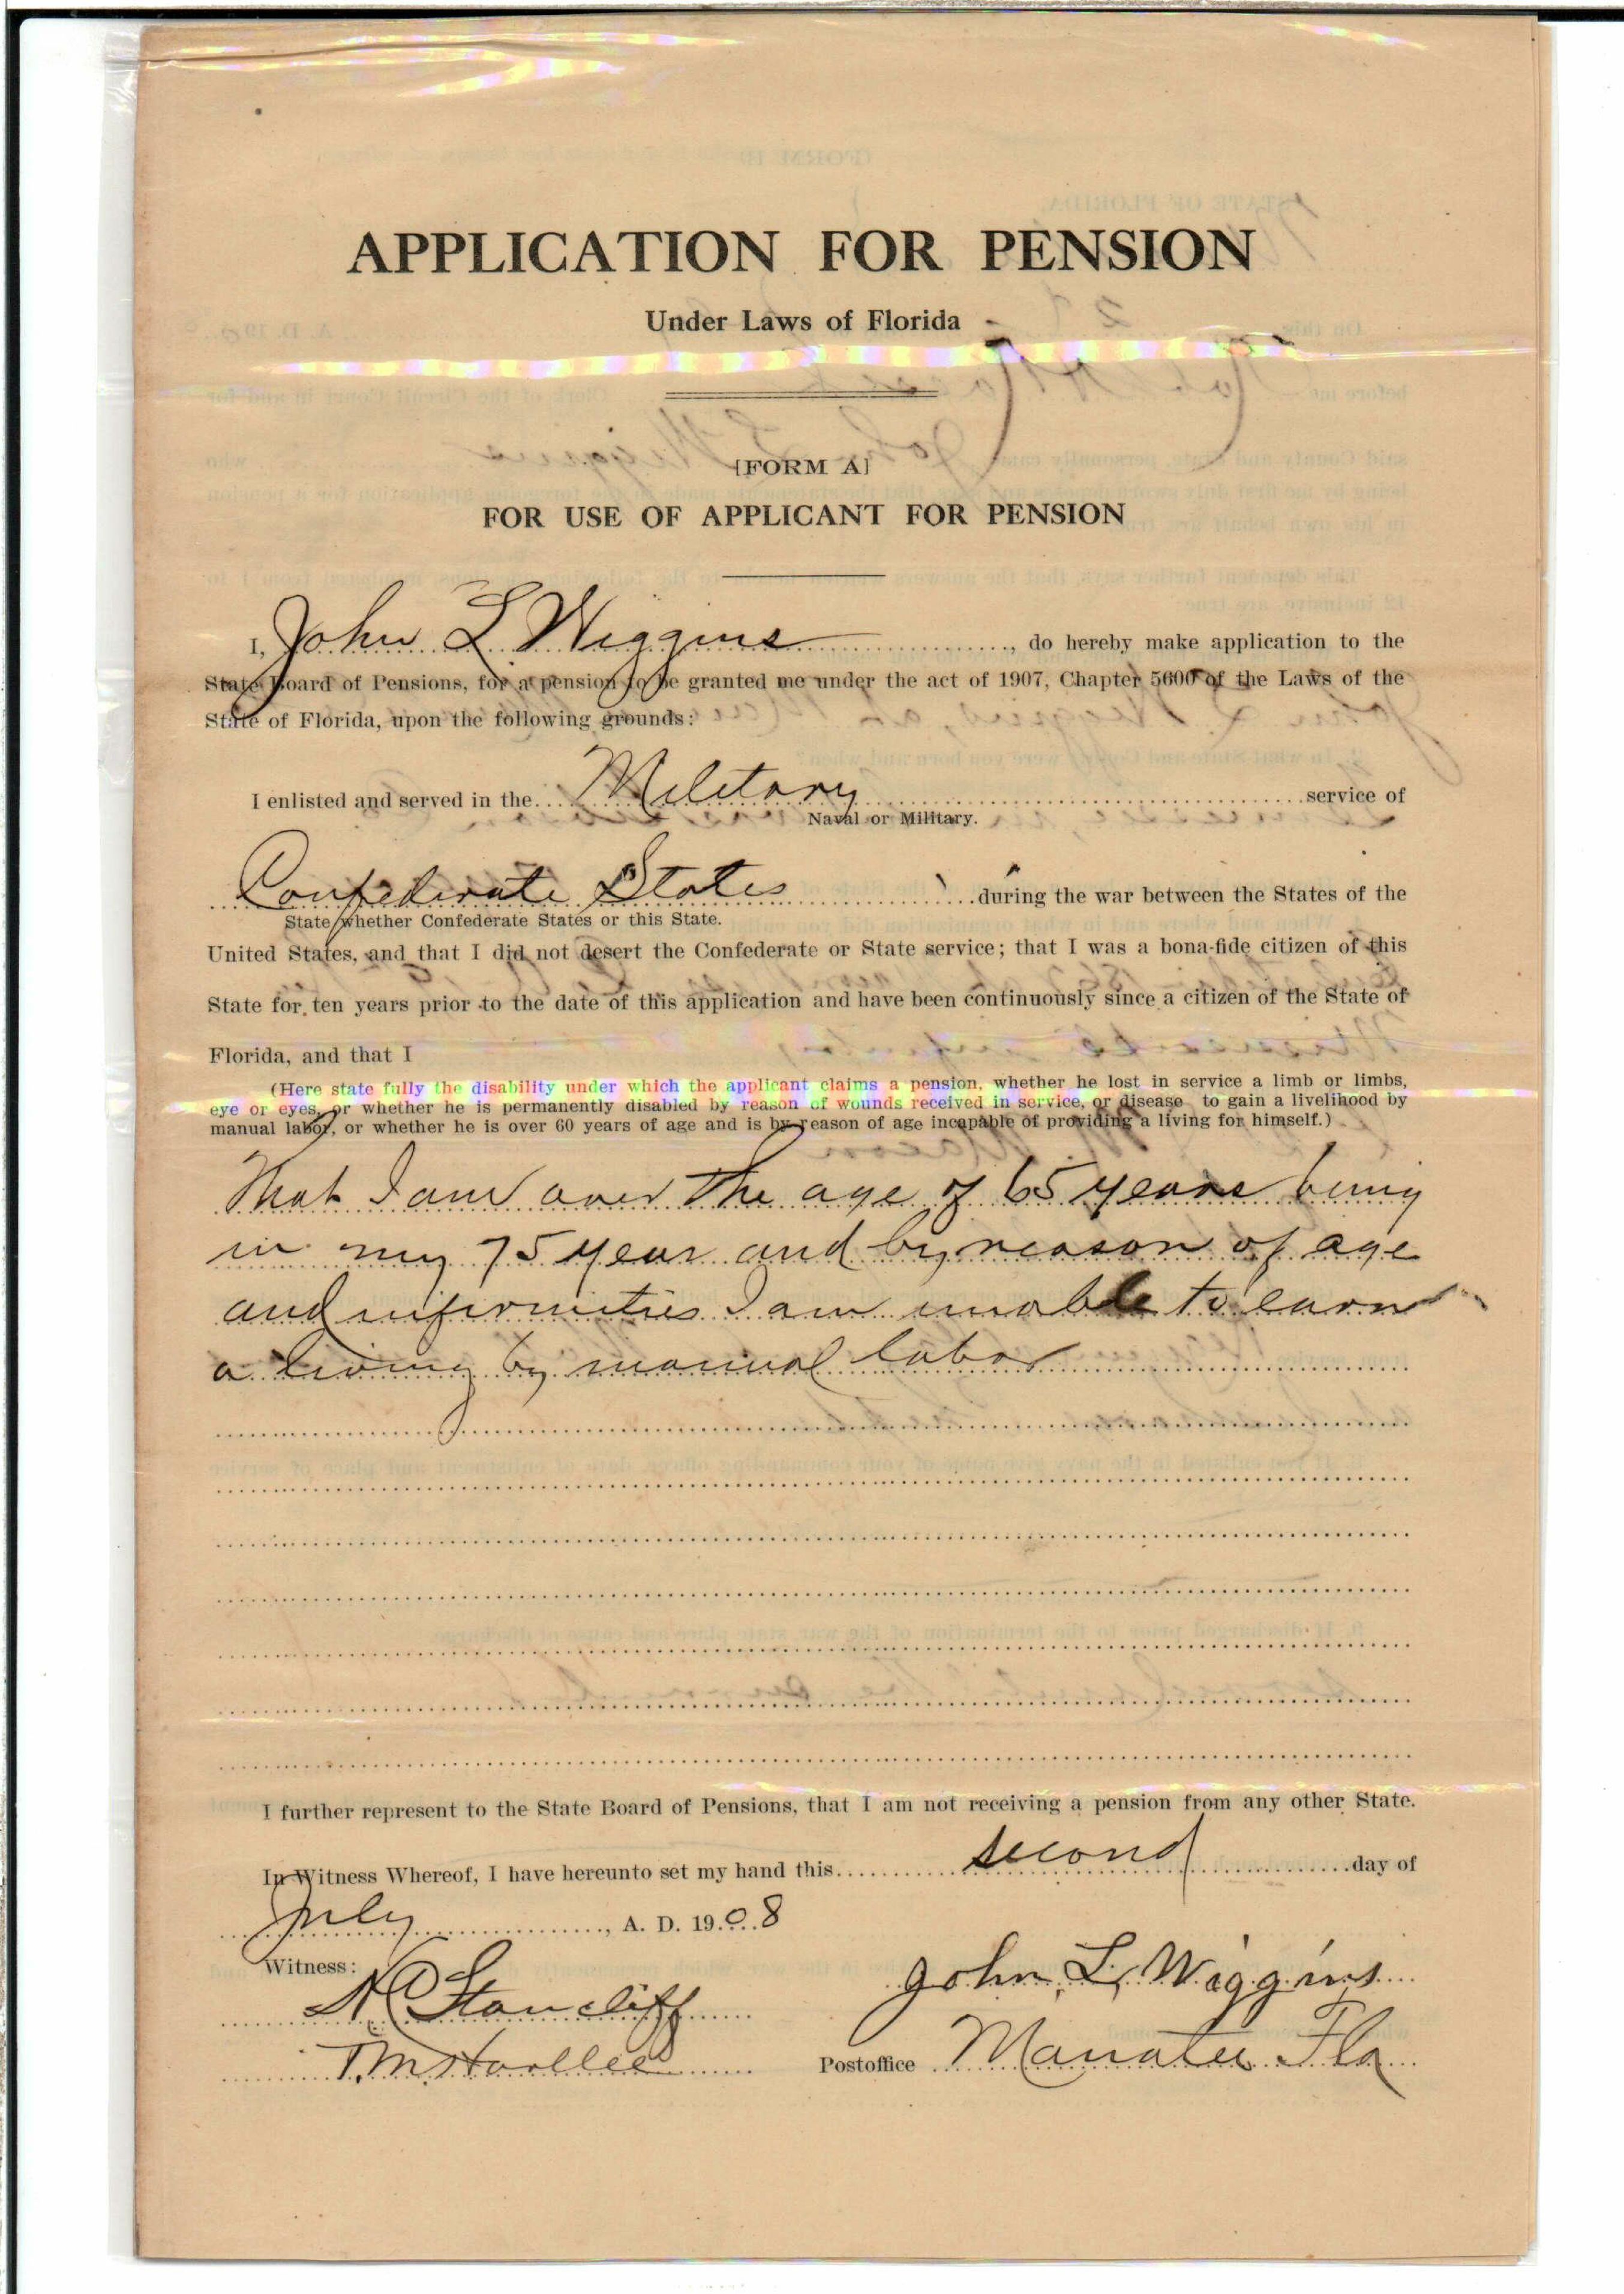 APPLICATION FOR PENSION
Under Laws of Florida
[FORM A]
FOR USE OF APPLICANT FOR PENSION
I, John L Wiggins, do hereby make application to the
State Board of Pensions, for a pension to be granted me under the act of 1907, Chapter 5600 of the Laws of the
State of Florida, upon the following grounds:
I enlisted and served in the Military service of
Naval or Military.
Confederate States during the war between the States of the
State whether Confederate States or this State.
United States, and that I did not desert the Confederate or State service; that I was a bona-fide citizen of this
State for ten years prior to the date of this application and have been continuously since a citizen of the State of
Florida, and that I
(Here state fully the disability under which the applicant claims a pension, whether he lost in service a limb or limbs,
eye or eyes, or whether he is permanently disabled by reason of wounds received in service, or disease to gain a livelihood by
manual labor, or whether he is over 60 years of age and is by reason of age incapable of providing a living for himself.)
That I am over the age of 65 years being
in my 75 year and by reason of age
and infirmities I am unable to earn
a living by manual labor
I further represent to the State Board of Pensions, that I am not receiving a pension from any other State.
In Witness Whereof, I have hereunto set my hand this second day of
July, A. D. 1908
Witness:
John L, Wiggins
Stancliff
Postoffice Manatee Fla